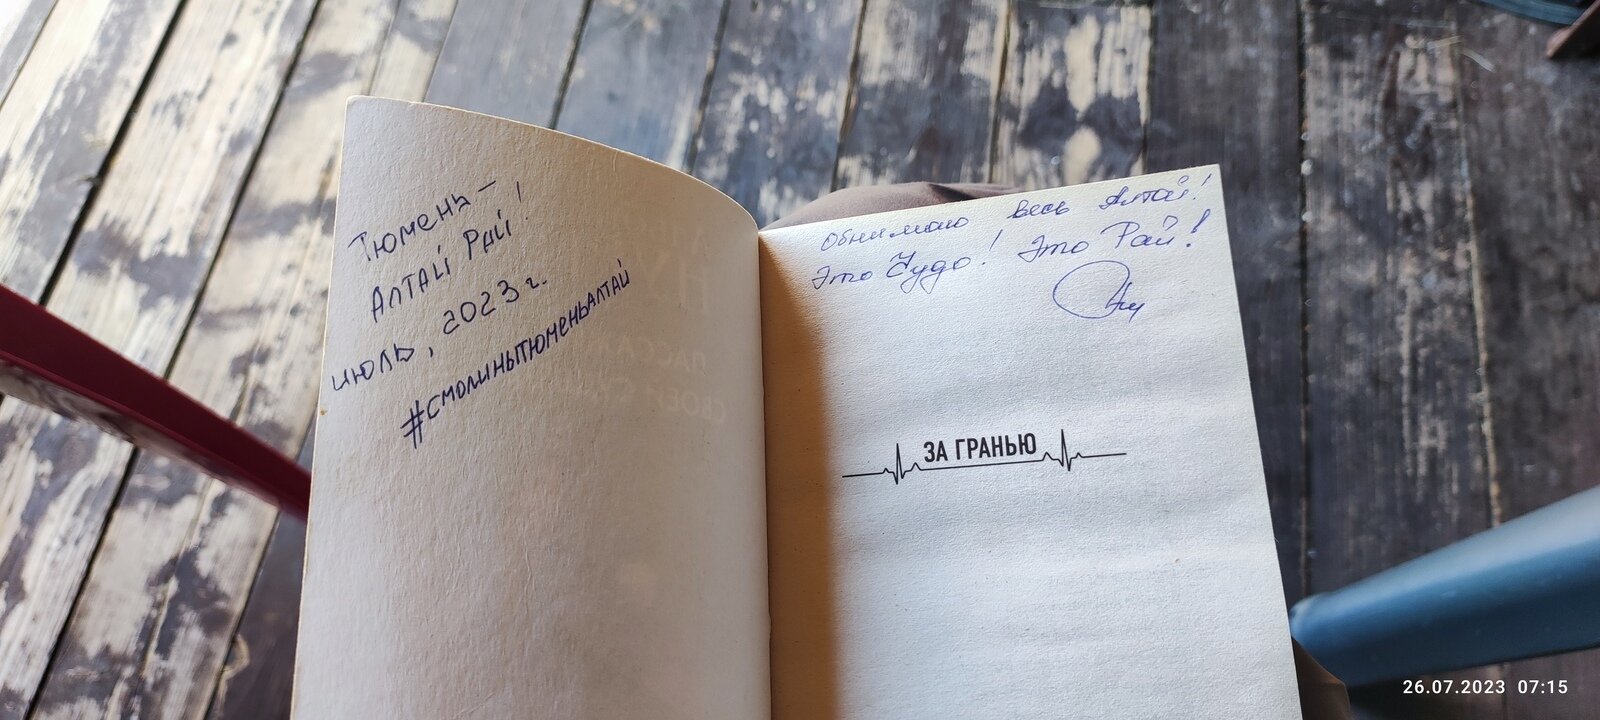 Тюмень-
Алтай Рай!
июль, 2023 г.
#смолинытюменьалтай
Обнимаю весь Алтай!
Это Чудо! Это Рай!
ЗА ГРАНЬЮ
26.07.2023 07:15